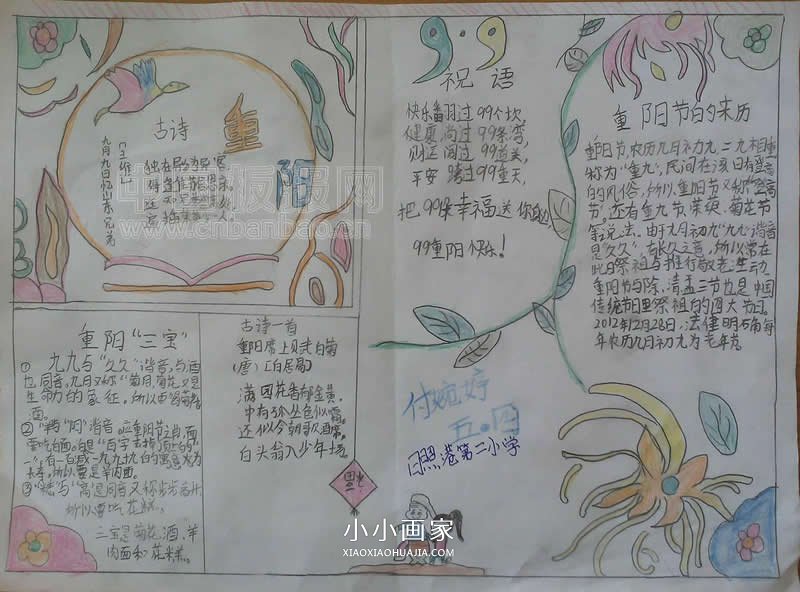 古诗
重
阳
九月九日忆山东兄弟
[王维]
独在异乡为异客
9.9
祝语
快乐翻过99个坎,
健康淌过99条弯,
财运闯过99道关,
平安跨过99重天,
把99条幸福送你
99重阳快乐!
重阳节的来历
重阳节,农历九月初九,二九相重
称为“重九”,民间在该日有登高
的风俗,所以重阳节又称“登高
节。还有重九节、茱萸、菊花节
等说法。由于九月初九“九九”谐音
是“久久”,有长久之意,所以常在
此日祭祖与推行敬老活动
重阳节与除、清、盂三节也是中国
传统节日里祭祖的四大节日。
2012年12月28日,法律明确每
年农历九月初九为老年节。
重阳“三宝”
① 九九与“久久”谐音,与酒
也同音,九月又称“菊月,菊花又是
生命力的象征,所以
酒。
②“羊”“阳”谐音。应重阳节之肖,面
要吃白面。白是“百”字去掉顶上的“一
”,有一百减一九九
③“糕”与“高是同音又称步步高升
所以要吃花糕。
三宝是菊花酒、羊
肉面和花米糕。
古诗一首
重阳席上赋白菊
(唐)[白居易]
满园花菊郁金黄,
中有孤丛色似霜。
还似今朝歌酒席,
白头翁入少年场。
付婉婷
五.四
日照港第二小学
福
中国板报网
www.cnbanbao.cn
小小画家
XIAOXIAOHUAJIA.COM